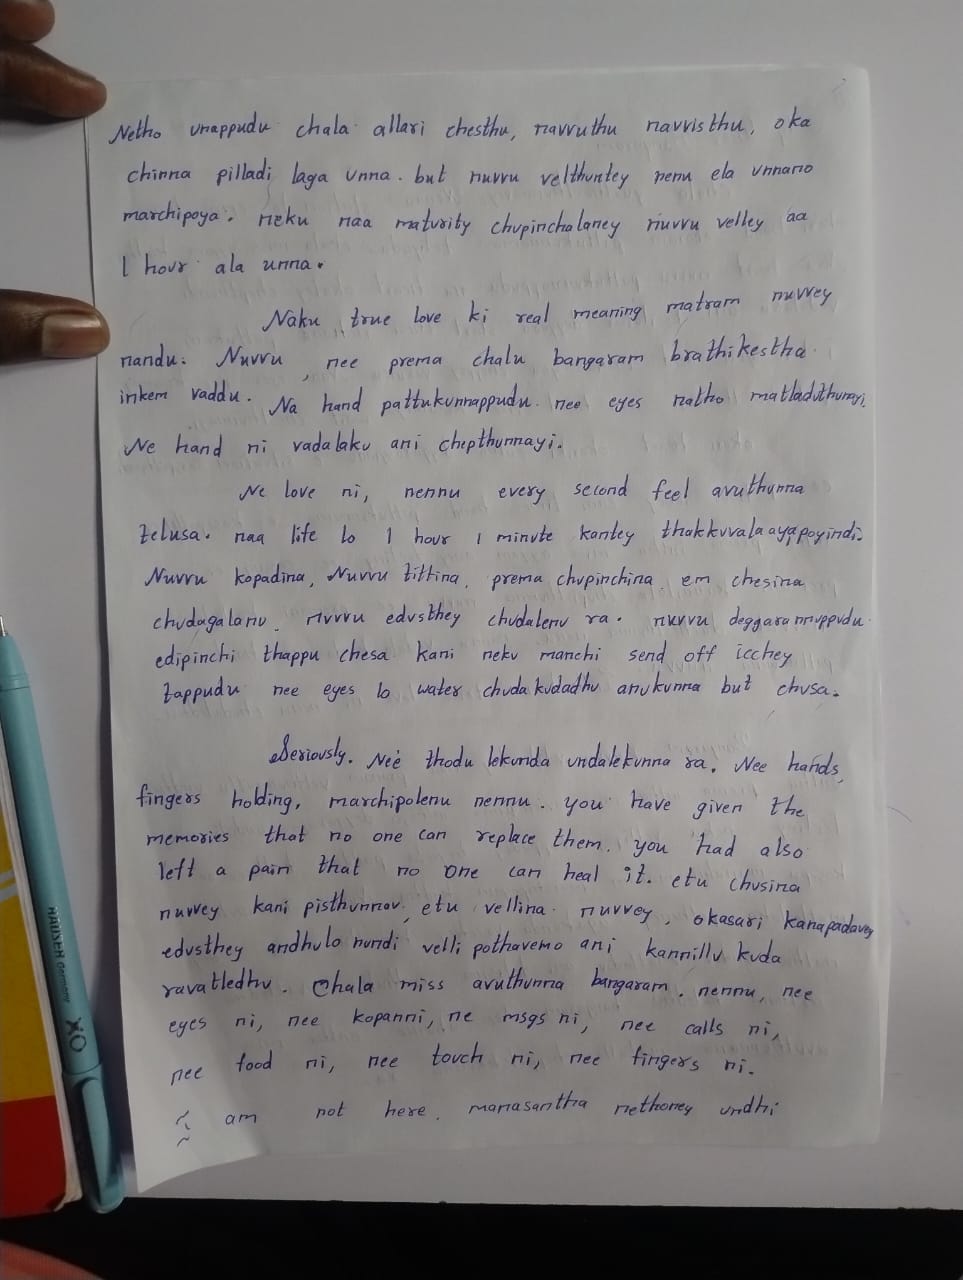 Netho vnappudu chala allari chesthu, navvuthu navvisthu, oka
chinna pilladi laga unna. but nuvvu velthuntey nenu ela vnnano
marchipoya. neku naa maturity chupinchalaney nuvvu velley aa
1 hour ala unna.
Naku true love ki real meaning matram nuvvey
nandu. Nuvvu, nee prema chalu bangaram brathikestha
inkem vaddu. Na hand pattukunnappudu nee eyes natho matladuthunnayi,
Ne hand ni vadalaku ani chepthunnayi.
Ne love ni, nennu every second feel avuthunna
telusa. naa life lo 1 hour 1 minute kantey thakkuvalaayapoyindi.
Nuvvu kopadina, Nuvvu tittina, prema chupinchina em chesina
chudagalanu. nuvvu edusthey chudalenu ra. nuvvu deggara nnuppudu
edipinchi thappu chesa kani neku manchi send off icchey
tappudu nee eyes lo water chuda kudadhu anukunna but chusa.
Seriously. Nee thodu lekunda undalekunna ra. Nee hands,
fingers holding, marchipolenu nennu. you have given the
memories that no one can replace them. you had also
left a pain that no one can heal it. etu chusina
nuvvey kani pisthunnav, etu vellina nuvvey, okasari kanapadavey
edusthey andhulo nundi velli pothavemo ani kannillu kuda
ravatledhu. Chala miss avuthunna bangaram. nennu, nee
eyes ni, nee kopanni, ne msgs ni, nee calls ni,
nee food ni, nee touch ni, nee fingers ni.
I am not here. manasantha nethoney undhi
HAUSER Germany XO